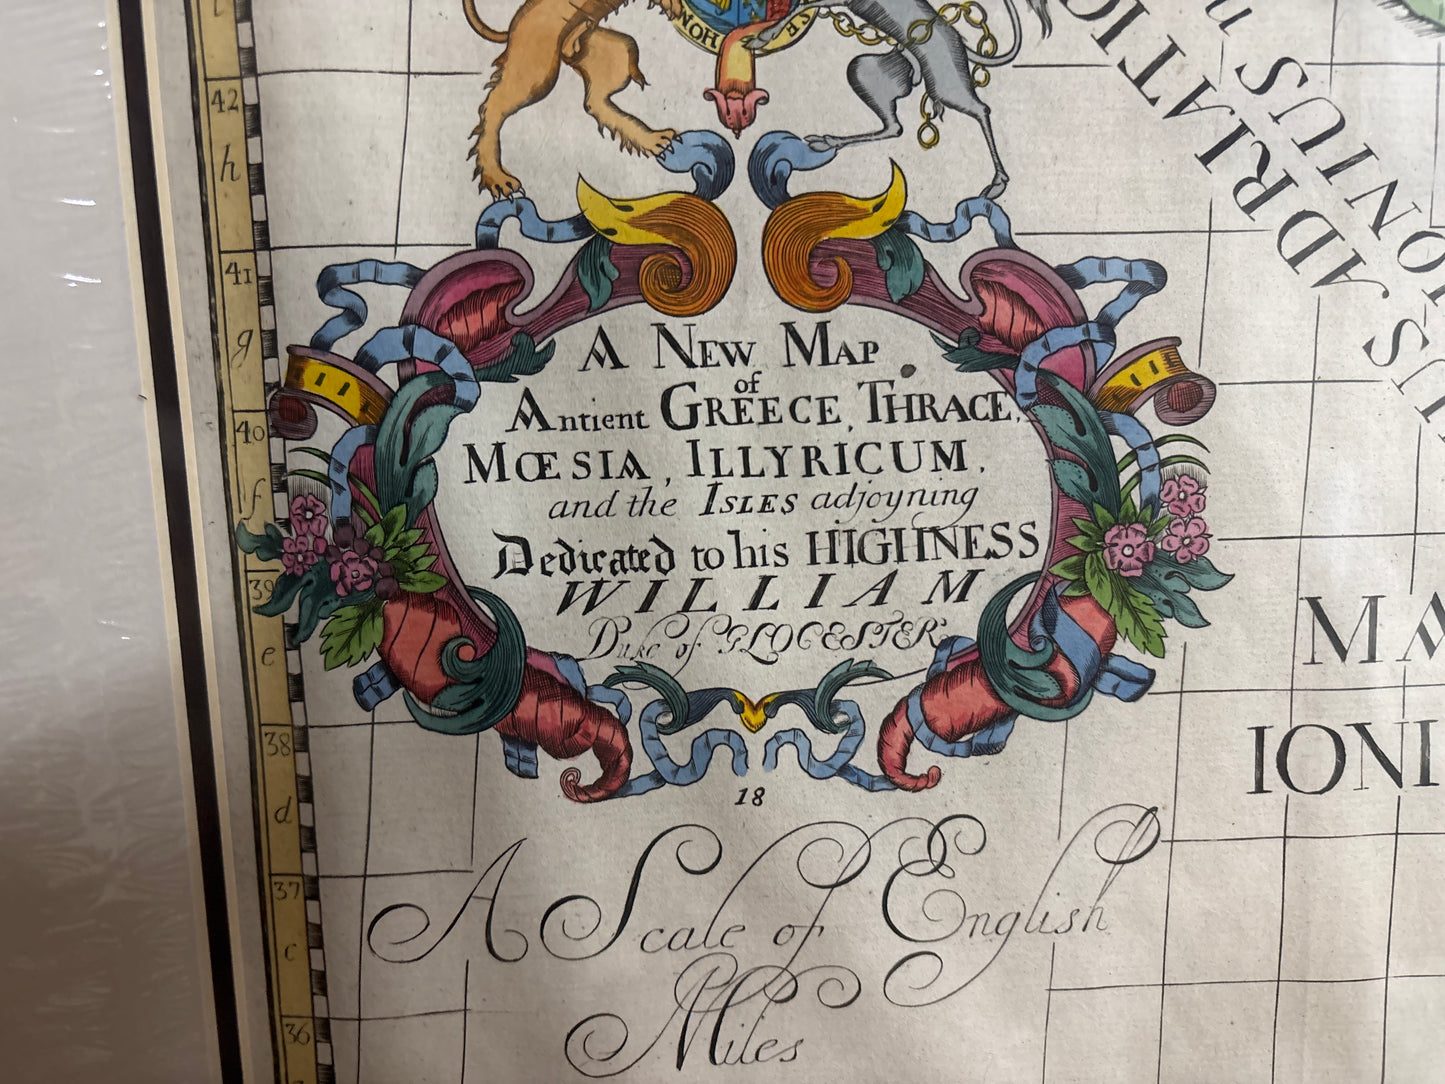 HON
42
h
41
g
40
f
39
e
38
d
37
c
36
ADRIATIC
IONIUS
A NEW MAP
of
Antient GREECE, THRACE,
MŒSIA, ILLYRICUM,
and the ISLES adjoyning
Dedicated to his HIGHNESS
WILLIAM
Duke of GLOCESTER
18
A Scale of English
Miles
MA
IONI